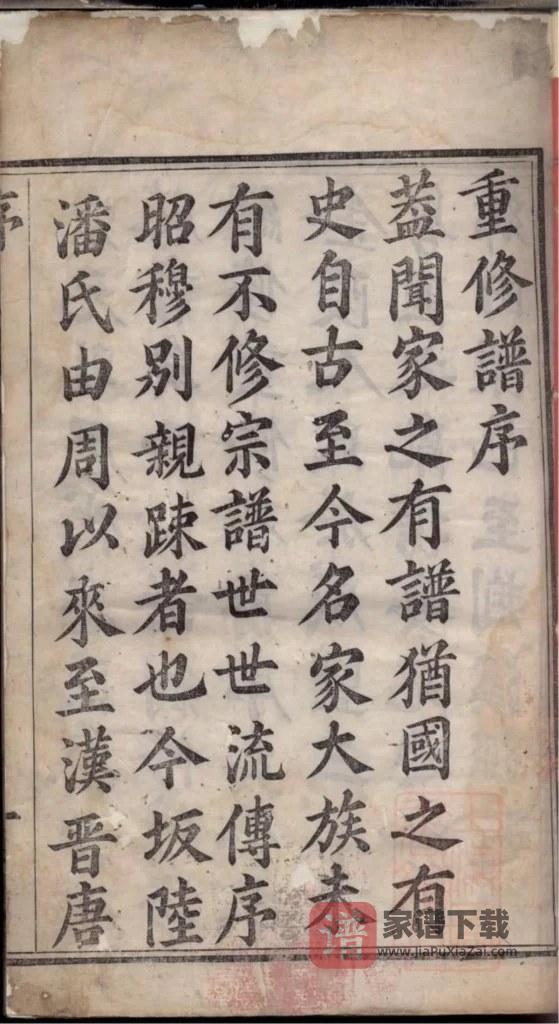 重修譜序
葢聞家之有譜猶國之有
史自古至今名家大族未
有不修宗譜世世流傳序
昭穆別親踈者也今坂陸
潘氏由周以來至漢晋唐
序
一
譜
家谱下载
www.JiaPuXiaZai.com